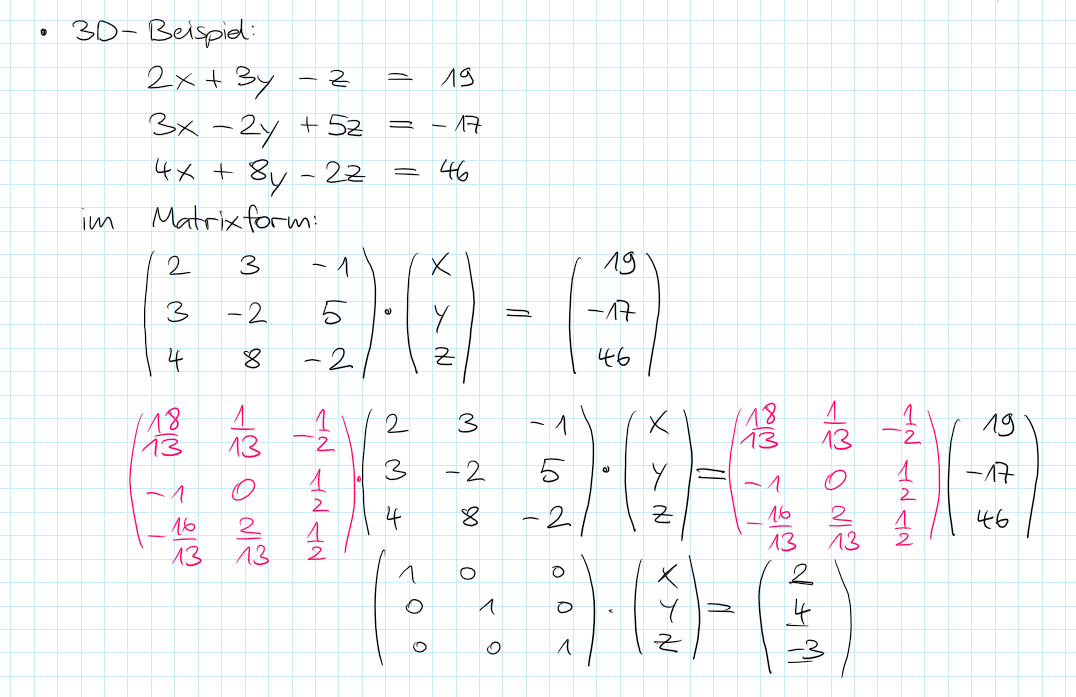 • 3D-Beispiel:
2x + 3y - z = 19
3x - 2y + 5z = -17
4x + 8y - 2z = 46
im Matrixform:
( 2 3 -1 ; 3 -2 5 ; 4 8 -2 ) · ( x ; y ; z ) = ( 19 ; -17 ; 46 )
( 18/13 1/13 -1/2 ; -1 0 1/2 ; -16/13 2/13 1/2 ) · ( 2 3 -1 ; 3 -2 5 ; 4 8 -2 ) · ( x ; y ; z ) = ( 18/13 1/13 -1/2 ; -1 0 1/2 ; -16/13 2/13 1/2 ) ( 19 ; -17 ; 46 )
( 1 0 0 ; 0 1 0 ; 0 0 1 ) · ( x ; y ; z ) = ( 2 ; 4 ; -3 )